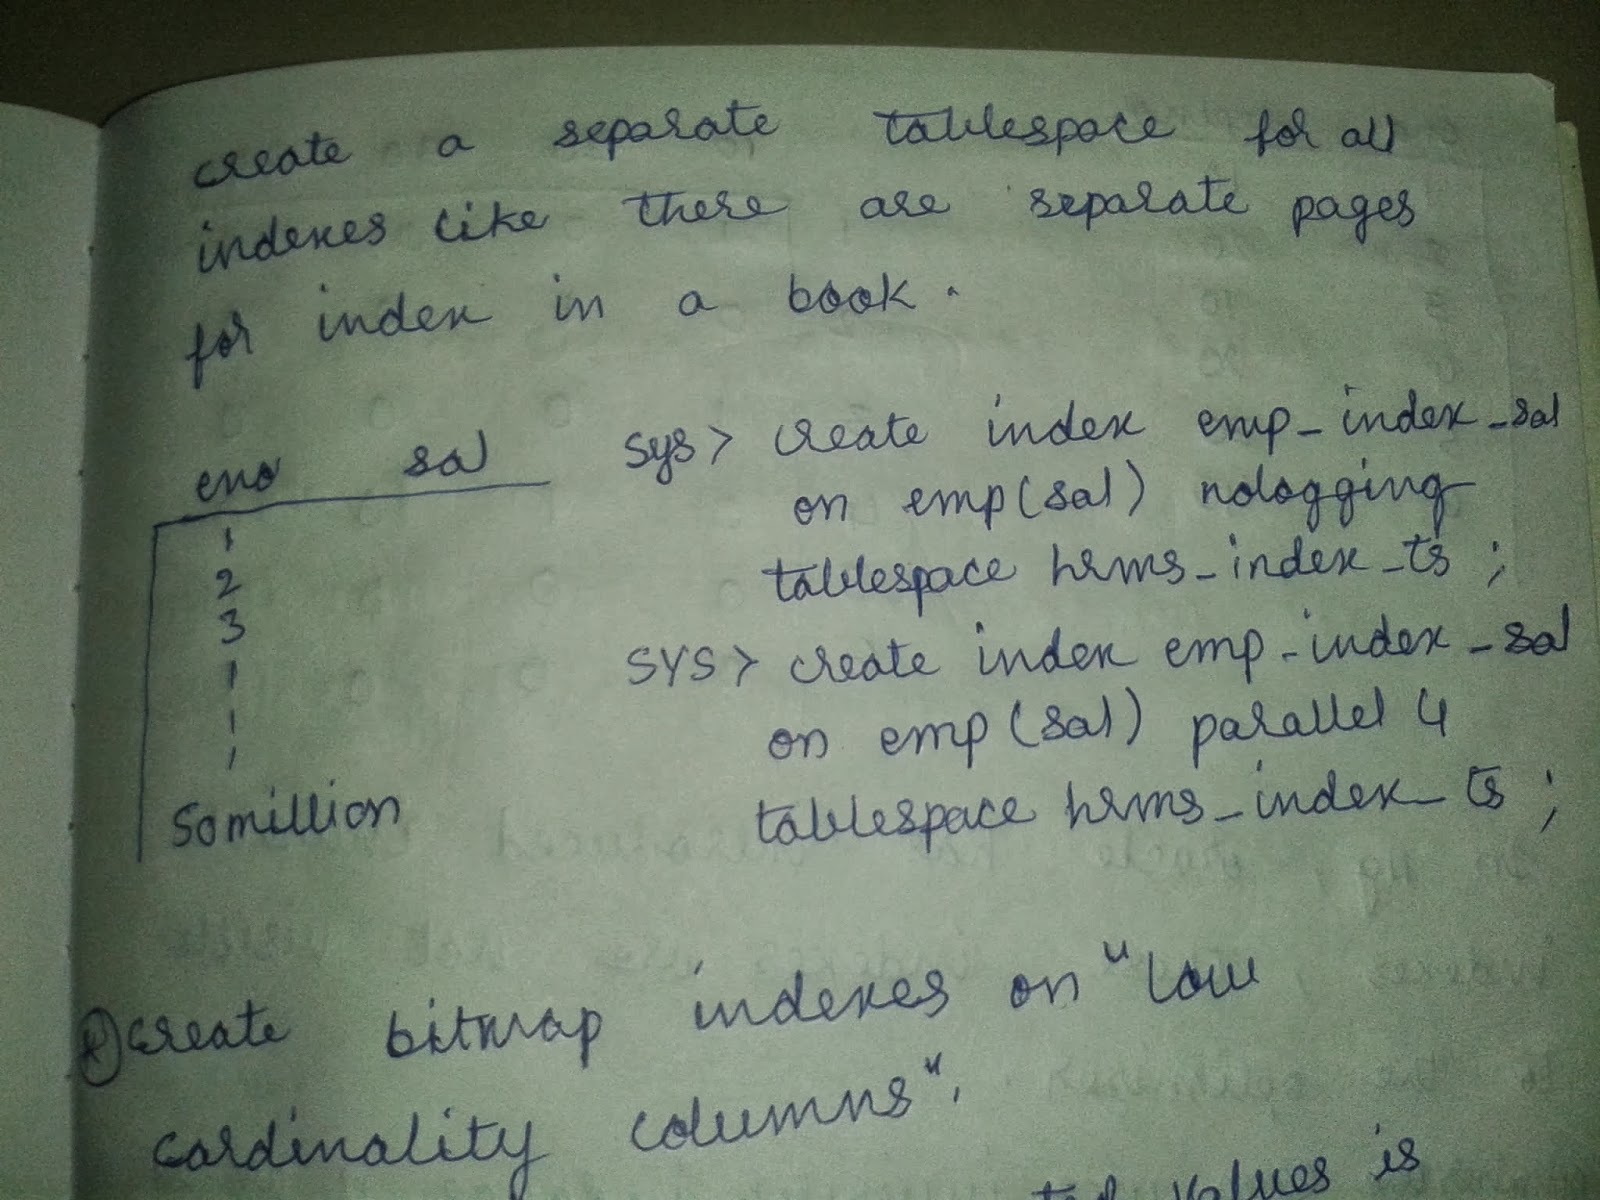 create a separate tablespace for all
indexes like there are separate pages
for index in a book.
eno sal
1
2
3
50 million
sys> create index emp_index_sal
on emp(sal) nologging
tablespace hrms_index_ts ;
SYS> create index emp_index_sal
on emp(sal) parallel 4
tablespace hrms_index_ts ;
create bitmap indexes on "low
cardinality columns".
values is